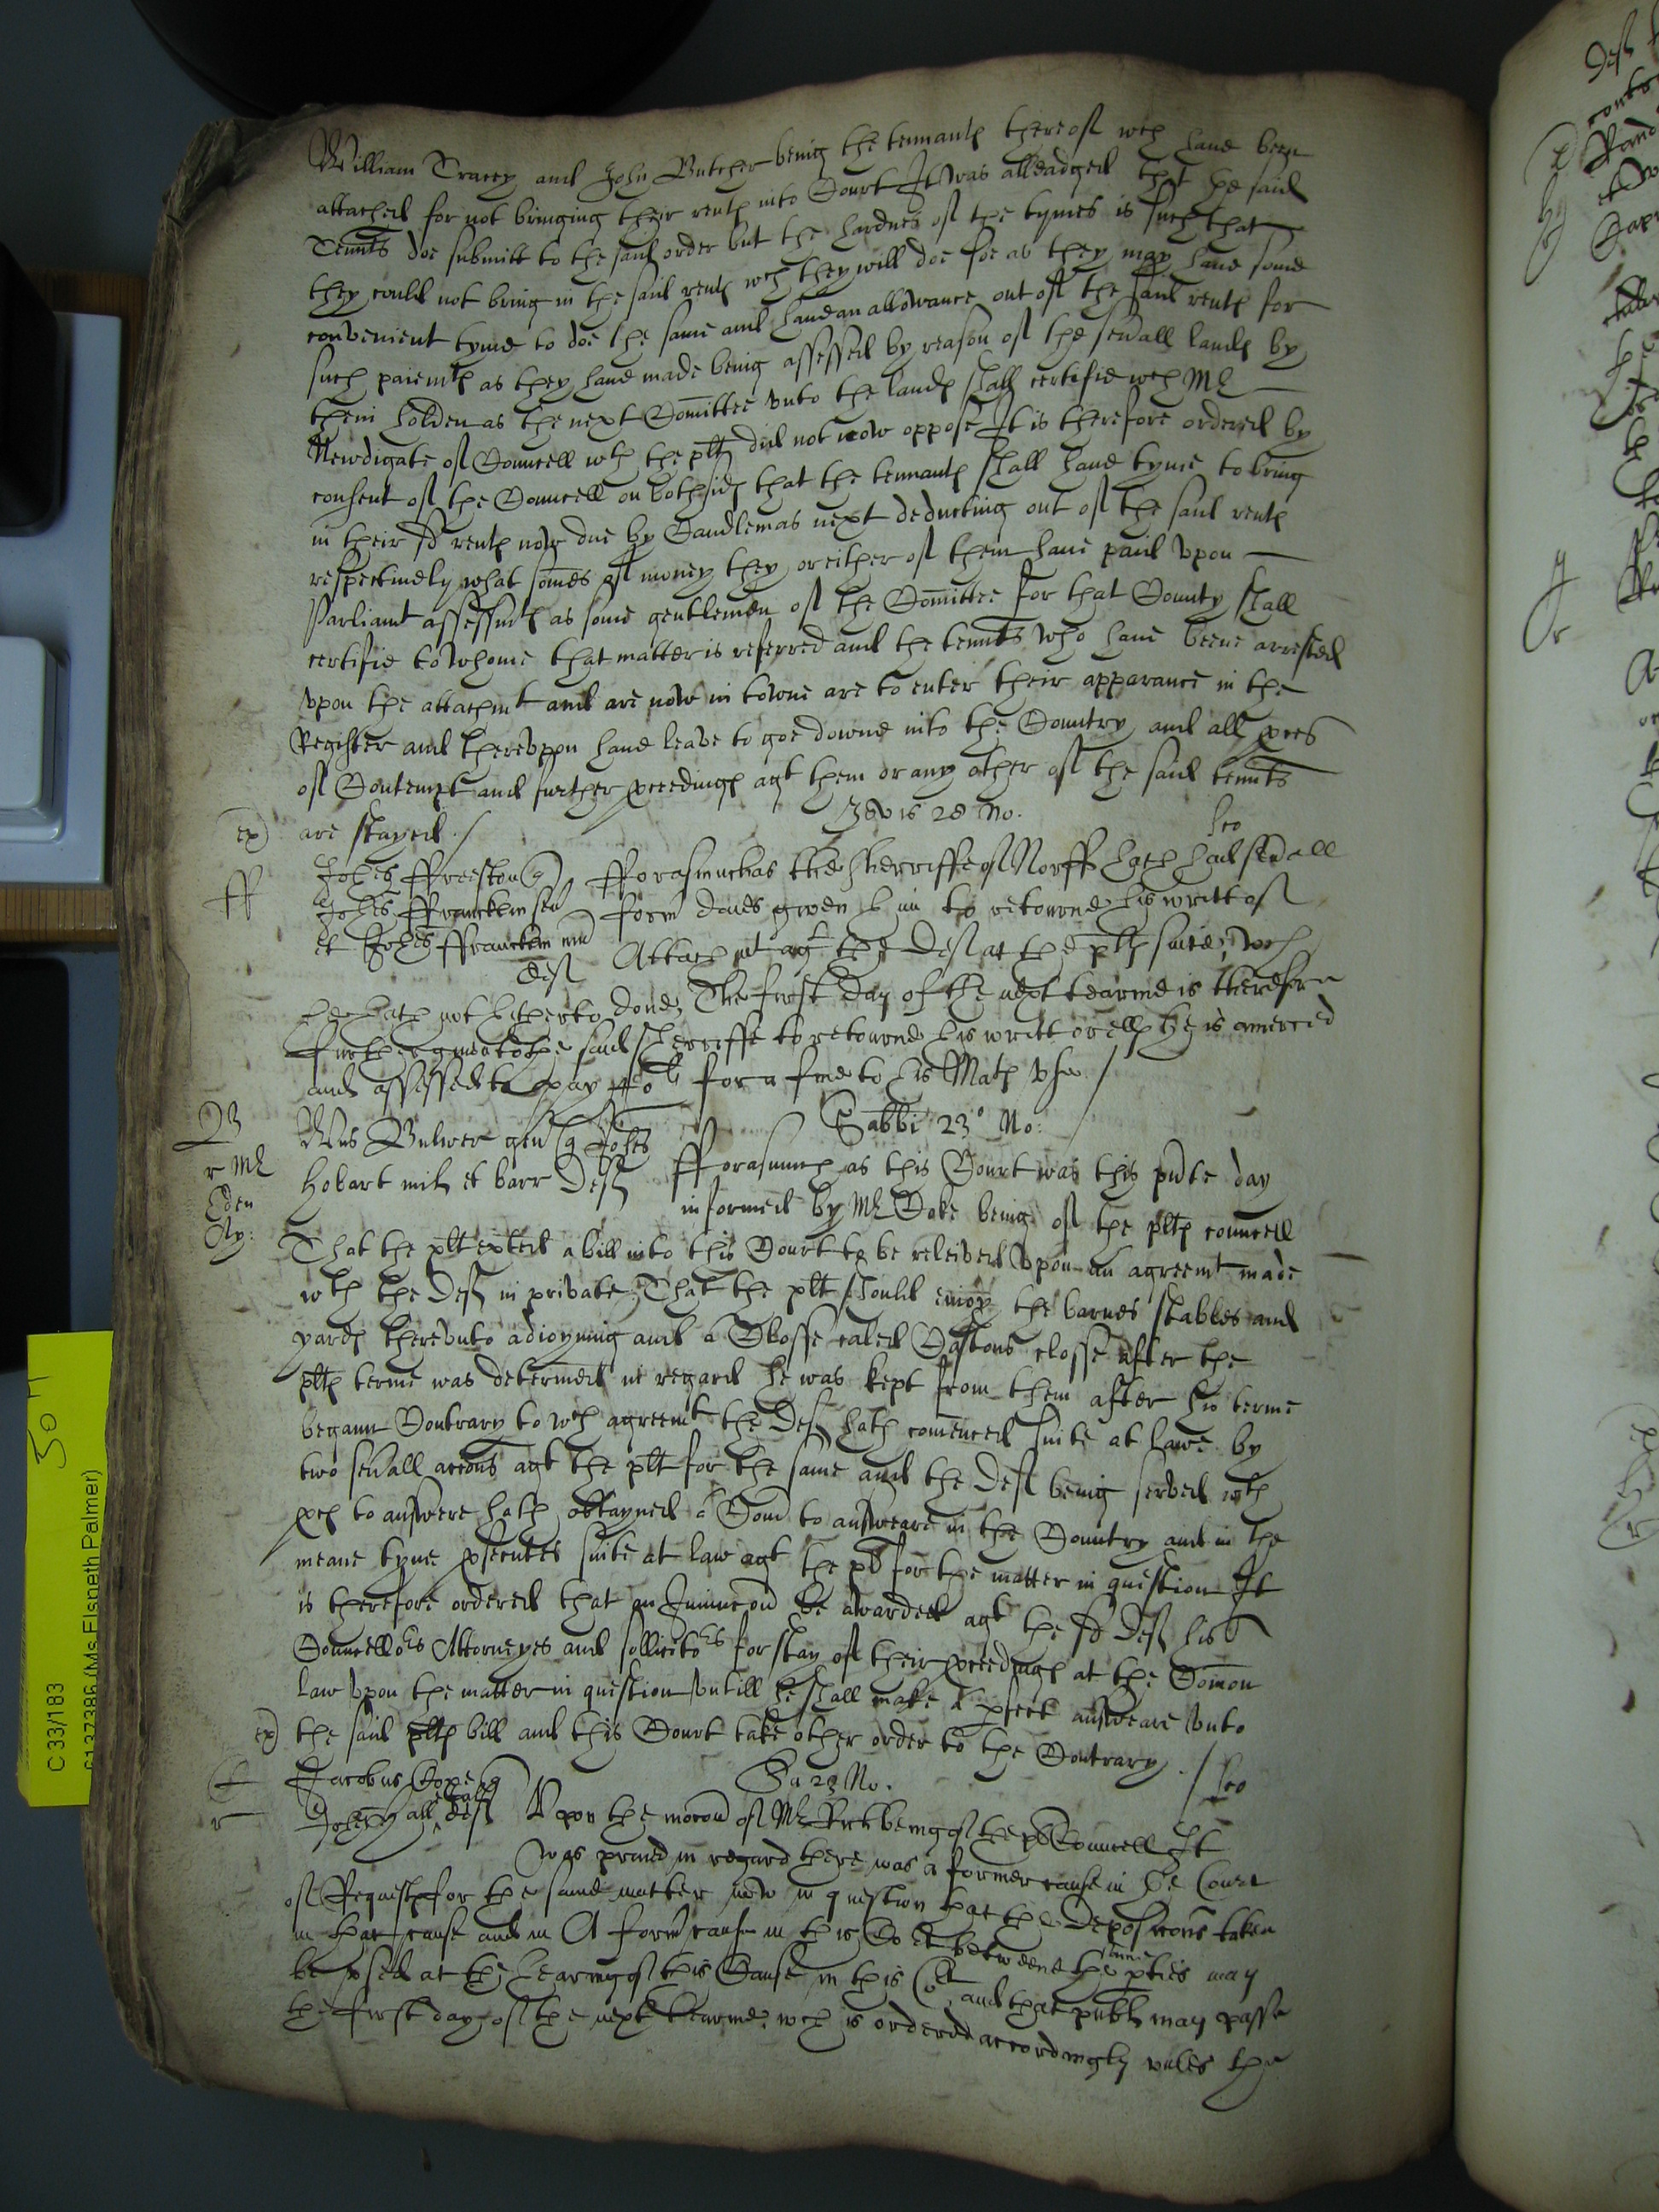 William Tracey and John Butcher being the tennants thereof wch have been
attached for not bringing their rents into Court It was alleadged that the said
Tennts doe submitt to the said order but the hardnes of the tymes is such that
they could not bring in the said rents wch they will doe soe as they may have some
convenient tyme to doe the same and have an allowance out of the said rents for
such paiemts as they have made being assessed by reason of the sevall lands by
them holden as the next Comittee unto the lands shall certifie wch Mr
Newdigate of Councell wth the plt did not now oppose It is therefore ordered by
consent of the Councell on both sides that the tennants shall have tyme to bring
in their sd rents now due by Candlemas next deducting out of the said rents
respectively what somes of money they or either of them have paid upon
Parliamt assessmts as some gentlemen of the Comittee for that County shall
certifie to whome that matter is referred and the tennts who have beene arrested
upon the attachmt and are now in towne are to enter their apparance in the
Register and thereuppon have leave to goe downe into the Country and all pces
of Contempt and further pceedings agt them or any other of the said tennts
ex) are stayed ./
Jovis 28 No.
ff
Johes ffreeston q
Johes ffrancklin sen
et Johes ffrancklin iun
Def
fforasmuch as the Sherriffe of Norff hath had sevall
form daies given him to retourne his writt of
Attachmt agt the Def at the plts suite, wch
he hath not hitherto done, The first day of the next tearme is therefore
further given to the said Sherriffe to retourne his writt or ells he is amerced
and assessed to pay for a fine to his Mats use ./
Sabbi 23° No:
B
r Mr
Eden
Ry:
Wus Bulwer gen q Johes
Hobart mil et barr Def
fforasmuch as this Court was this pnte day
informed by Mr Coke being of the plts councell
That the plt exhted a bill into this Court to be releived upon an agreemt made
wth the Def in private, That the plt should enioy the barnes stables and
yards thereunto adioyning and a Closse caled Castons closse after the
plts terme was determed in regard he was kept from them after his terme
begann Contrary to wch agreemt the Def hath comenced suite at lawe by
two sevall accons agt the plt for the same and the Def being served wth
pces to answere hath obtayned a Com to answeare in the Country and in the
meane tyme psecutes suite at law agt the pl for the matter in question It
is therefore ordered that an Iniuncon be awarded agt the sd Def his
Councellors Attorneyes and sollicitrs for stay of their pceedings at the Comon
law upon the matter in question untill he shall make a pfect answeare unto
ex) the said plts bill and this Court take other order to the Contrary ./ leo
Sa 23 No.
r
Jacobus Cope q
Johes Hall et al Def
Upon the mocon of Mr being of the pl Councell It
was praied in regard there was a former cause in the Court
of Requests for the same matter now in question that the deposicons taken
in that cause and in A form cause in this Cort betweene the same pties may
be used at the hearing of this Cause in this Cort and that publ may passe
the first day of the next tearme, wch is ordered accordingly unles the
C 33/183
61337386 (Ms Elspeth Palmer)